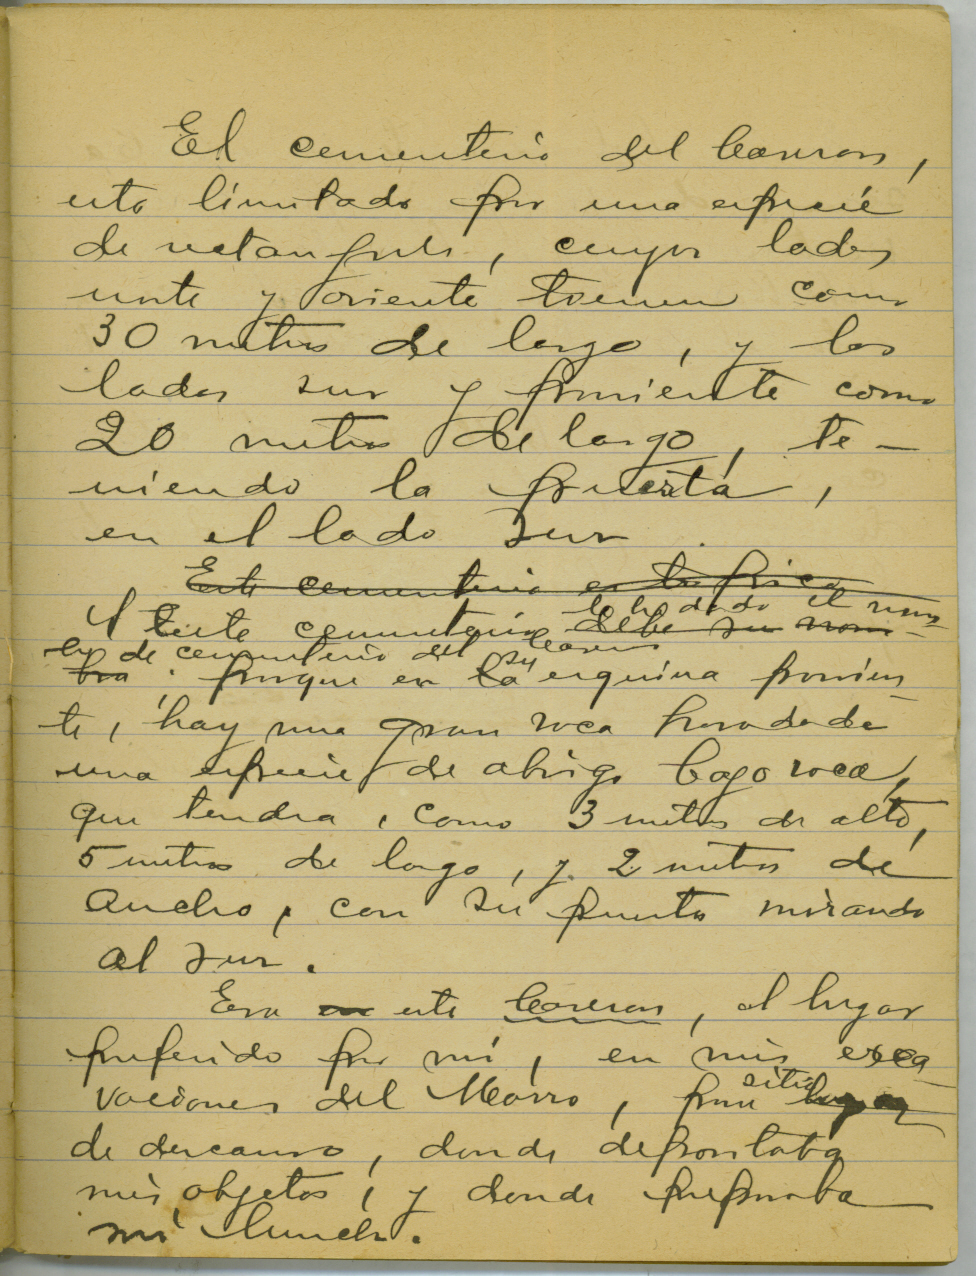 El cementerio del Caseron,
esta limitado por una especie
de rectangulo, cuyos lados
norte y oriente tienen como
30 metros de largo, y los
lados sur y poniente como
20 metros de largo, te-
niendo la puerta,
en el lado sur.
Este cementerio
A este cementerio le he dado el nom-
debe su nom-
bre de cementerio del Caseron
bra porque en la su esquina ponien-
te, hay una gran roca horadada
una especie de abrigo bajo roca,
que tendra, como 3 metros de alto,
5 metros de largo, y 2 metros de
ancho, con su puerta mirando
al sur.
Era este Caseron, el lugar
preferido por mi, en mis exca-
vaciones del Morro, para sitio lugar
de descanso, donde depositaba
mis objetos, y donde preparaba
mi lunch.